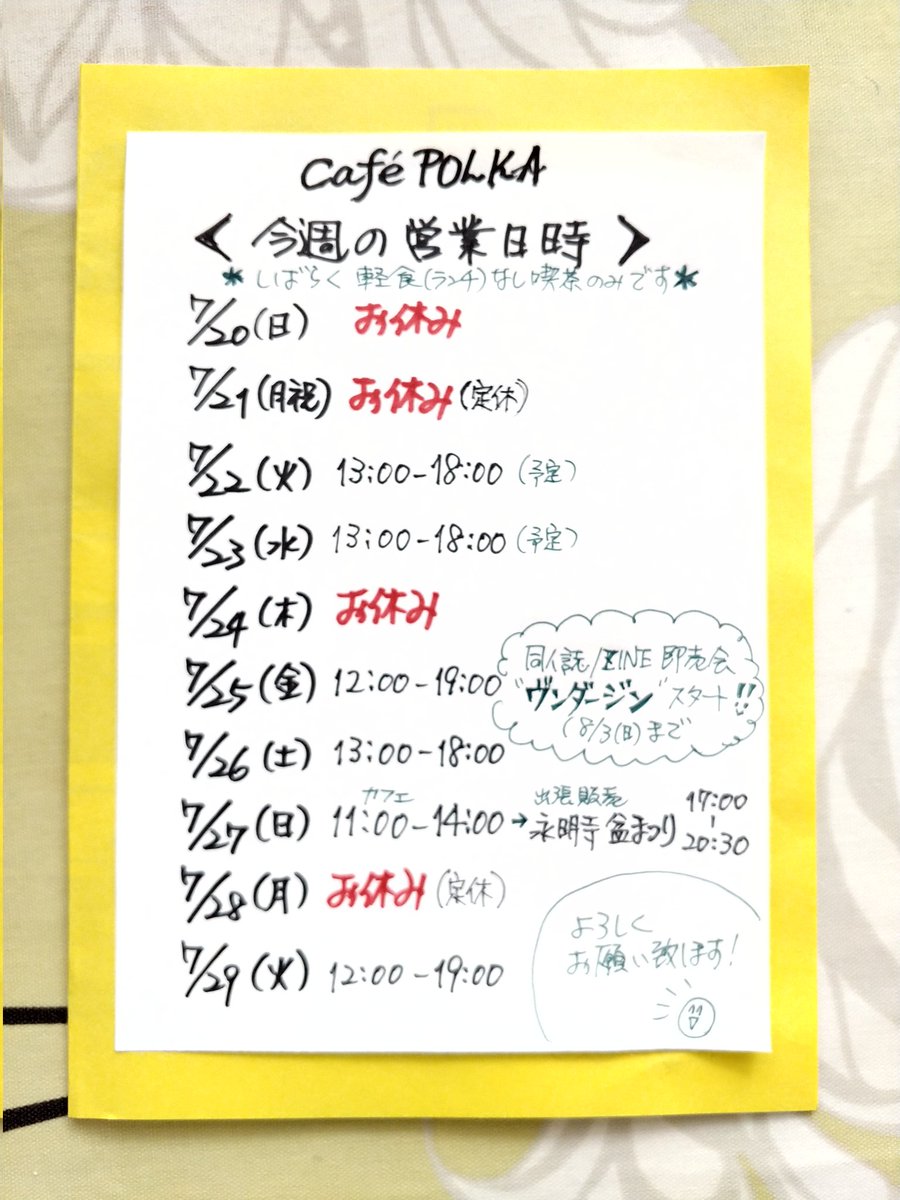 Café POLKA
< 今週の営業日時 >
*しばらく 軽食(ランチ)なし喫茶のみです*
7/20(日) お休み
7/21(月祝) お休み(定休)
7/22(火) 13:00-18:00(予定)
7/23(水) 13:00-18:00(予定)
7/24(木) お休み
7/25(金) 12:00-19:00
同人誌/ZINE 即売会
"ヴンダージン"スタート!!
(8/3(日)まで
7/26(土) 13:00-18:00
カフェ
7/27(日) 11:00-14:00→
出張販売
永明寺 盆まつり
17:00
-
20:30
7/28(月) お休み(定休)
7/29(火) 12:00-19:00
よろしく
お願い致します!